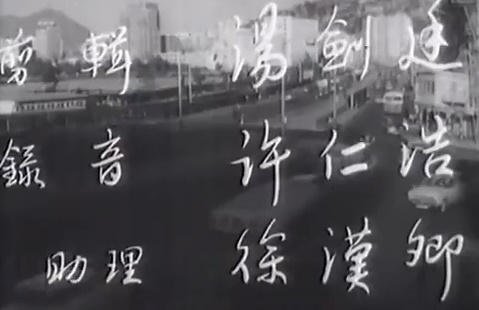 剪輯 湯劍廷
錄音 许仁浩
助理 徐漢卿